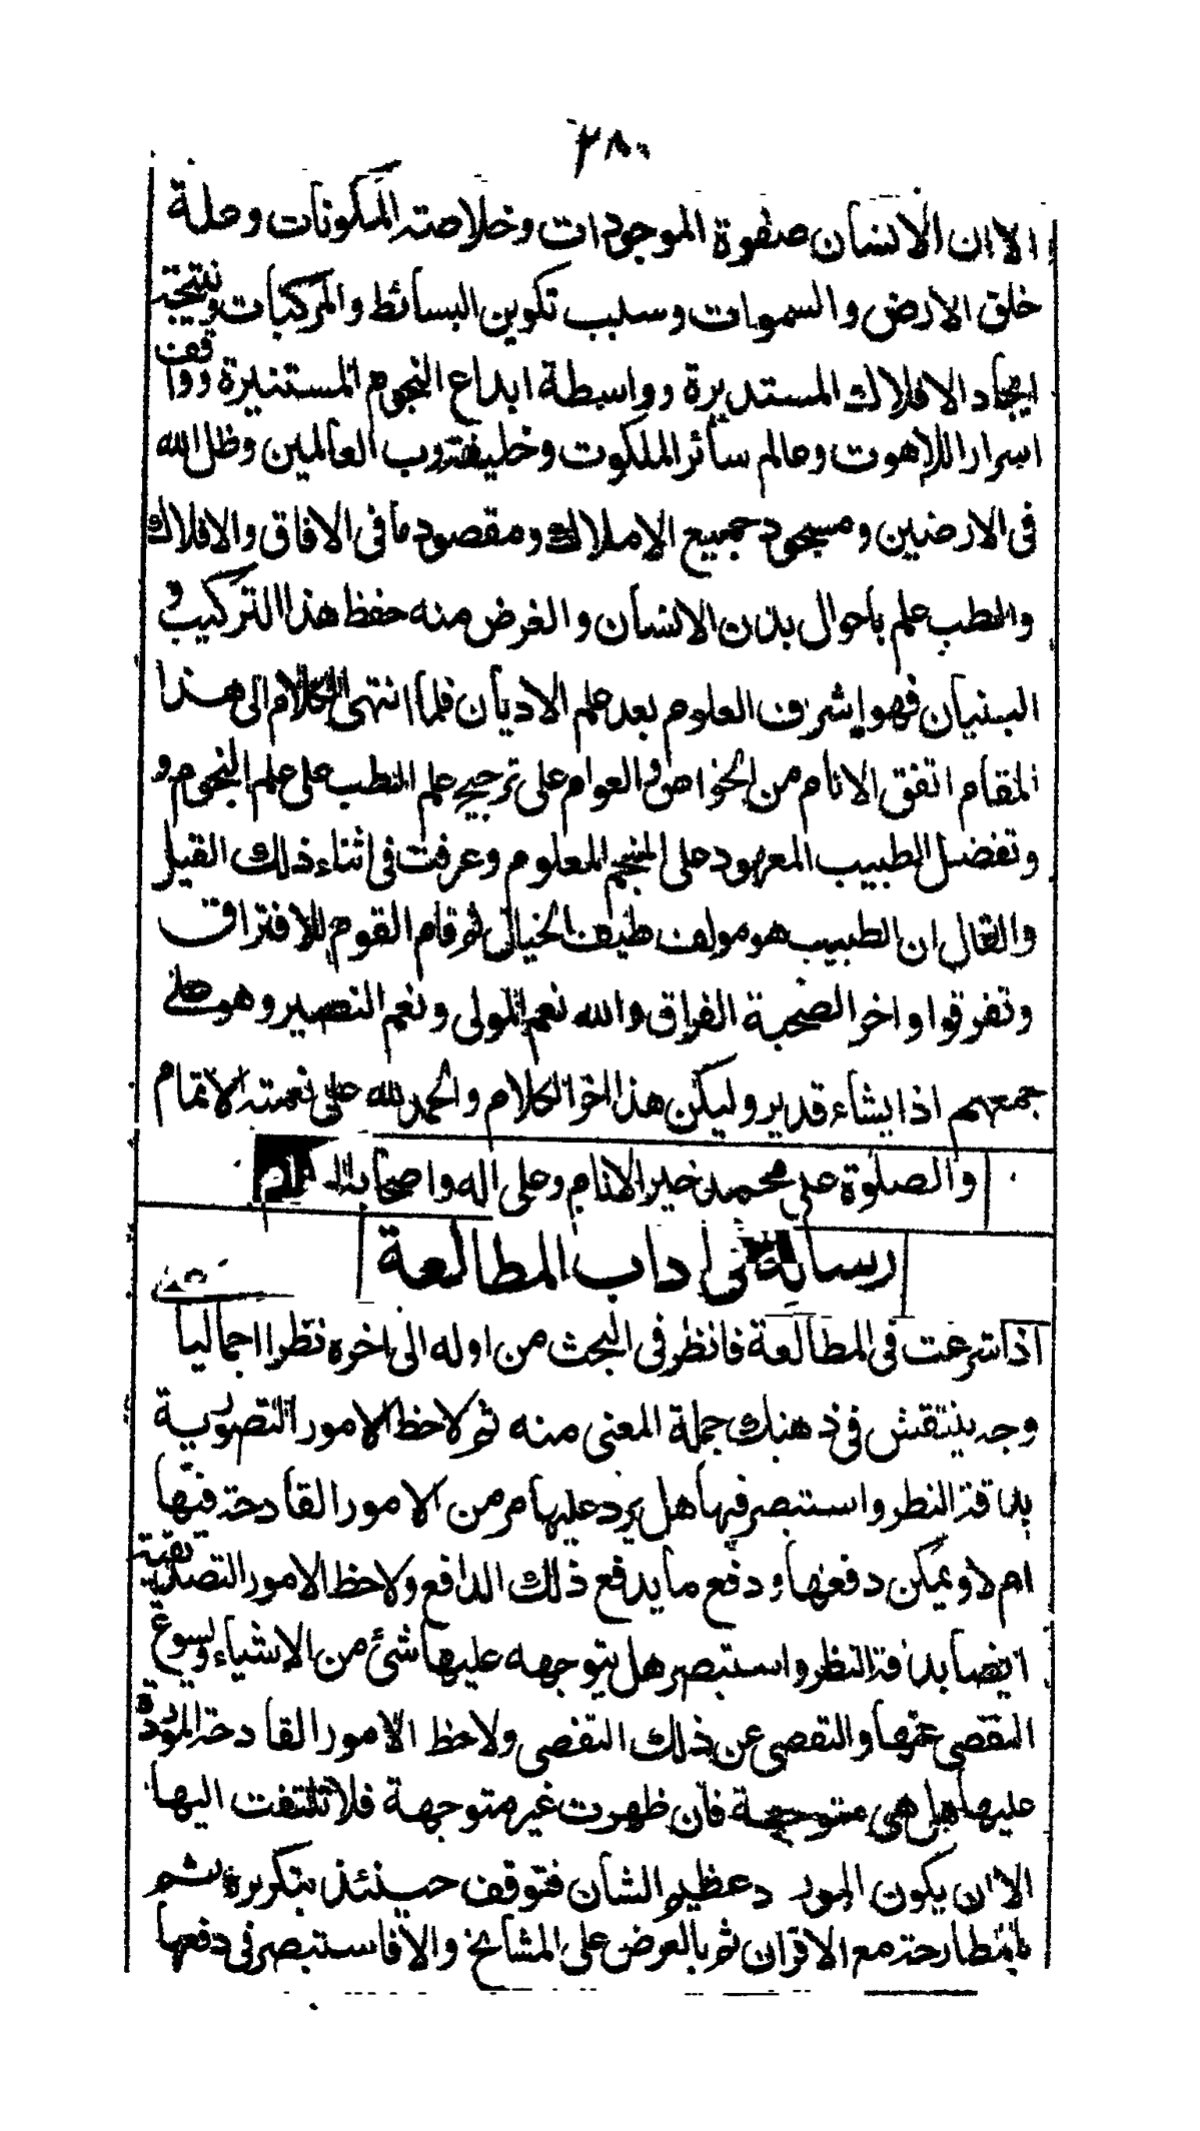 ٢٨٠
الا ان الانسان صفوة الموجودات وخلاصته المكونات وعلة
خلق الارض والسموات وسبب تكوين البسائط والمركبات ونتيجته
ايجاد الافلاك المستديرة وواسطة ابداع النجوم المستنيرة وواقف
اسرار اللاهوت وعالم سائر الملكوت وخليفته رب العالمين وظل الله
فى الارضين ومسجود جميع الاملاك ومقصود ما فى الافاق والافلاك
والطب علم باحوال بدن الانسان والغرض منه حفظ هذا التركيب و
البنيان فهو اشرف العلوم بعد علم الاديان فلما انتهى الكلام الى هذا
المقام اتفق الانام من الخواص والعوام على ترجيح علم الطب على علم النجوم و
وتفضل الطبيب المعهود على المنجم المعلوم وعرفت فى اثناء ذلك القيل
والقال ان الطبيب هو مولف طيف الخيال ثم قام القوم للافتراق
وتفرقوا واخر الصحبة الفراق والله نعم المولى ونعم النصير وهو على
جمعهم اذا يشاء قدير وليكن هذا اخر الكلام والحمد لله على نعمته الاتمام
والصلوة على محمد خير الانام وعلى اله واصحابه
رسالة فى اداب المطالعة
اذا شرعت فى المطالعة فانظر فى البحث من اوله الى اخره نظرا اجماليا
وجه ينتقش فى ذهنك جملة المعنى منه ثم لاحظ الامور التصورية
بدقة النظر واستبصر فيها هل يرد عليها امر من الامور القادحة فيها
ام لا ويمكن دفعها ودفع ما يدفع ذلك الدافع ولاحظ الامور التصديقية
ايضا بدقة النظر واستبصر هل يتوجه عليها شئ من الاشياء ويسوغ
التقصى عنها والتقصى عن ذلك التقصى ولاحظ الامور القادحة الموردة
عليها هل هى متوجهة فان ظهرت غير متوجهة فلا تلتفت اليها
الا ان يكون المورد عظيم الشان فتوقف حينئذ بتكريره ثم
بالمطارحة مع الاقران ثم بالعرض على المشائخ والا فاستبصر فى دفعها